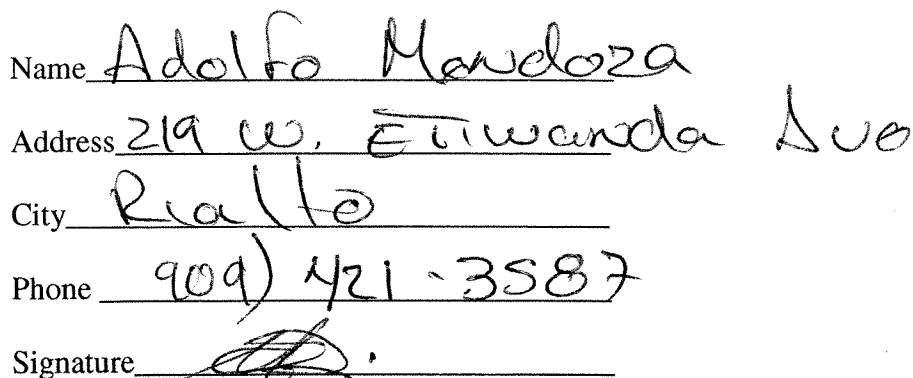 Name Adolfo Mendoza
Address 219 W. Etiwanda Ave
City Rialto
Phone 909) 421-3587
Signature